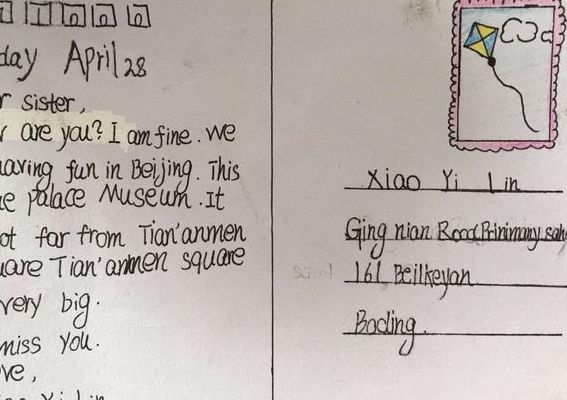 day April 28
sister,
are you? I am fine. We
aving fun in Beijing. This
e palace Museum. It
ot far from Tian'anmen
uare Tian'anmen square
very big.
miss you.
ve,
Xiao Yi Lin
Ging nian Road
161 Beilkeyan
Boding.